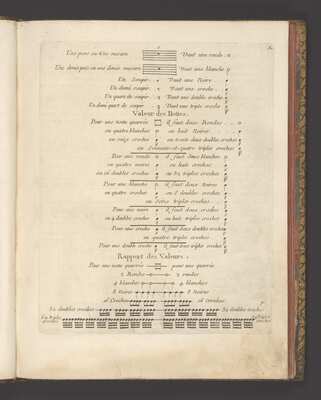 Une pose ou Une mesure Vaut une ronde
Une demie pose ou une demie mesure Vaut une blanche
Un Soupir Vaut une Noire
Un demi soupir Vaut une croche
Un quart de soupir Vaut une double croche
Un demi quart de soupir Vaut une triple croche
Valeur des Nottes.
Pour une notte quarrée il faut deux Rondes
ou quatre blanches ou huit Noires
ou seize croches ou trente deux doubles croches
ou Soixante et quatre triples croches
Pour une ronde il faut deux blanches
ou quatre noires ou huit croches
ou 16 doubles croches ou 32 triples croches
Pour une blanche il faut deux Noires
ou quatre croches ou 8 doubles croches
ou Seize triples croches
Pour une noire il faut deux croches
ou 4 doubles croches ou huit triples croches
Pour une croche il faut deux doubles croches
ou quatre triples croches
Pour une double croche il faut deux triples croches
Rapport des Valeurs.
Pour une notte quarrée pour une quarrée
2 Rondes 2 rondes
4 blanches 4 blanches
8 noires 8 Noires
16 Croches 16 Croches
32 doubles croches 32 doubles croches
64 triples croches 64 triples croches